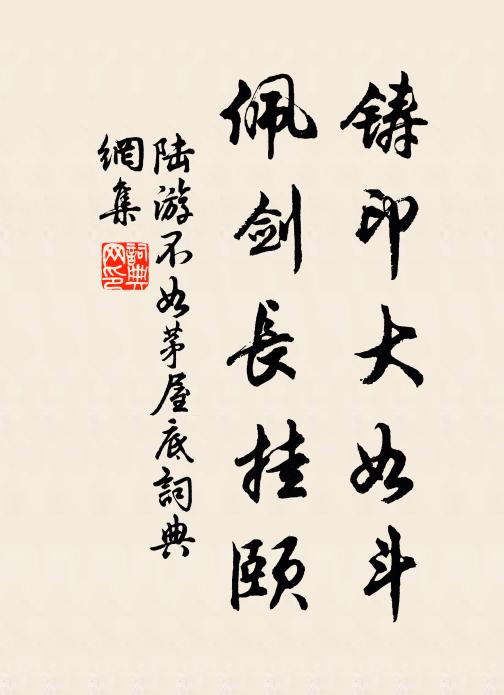 铸印大如斗
佩剑長挂頤
陆游不如茅屋底詞典
網集
詞典
网印